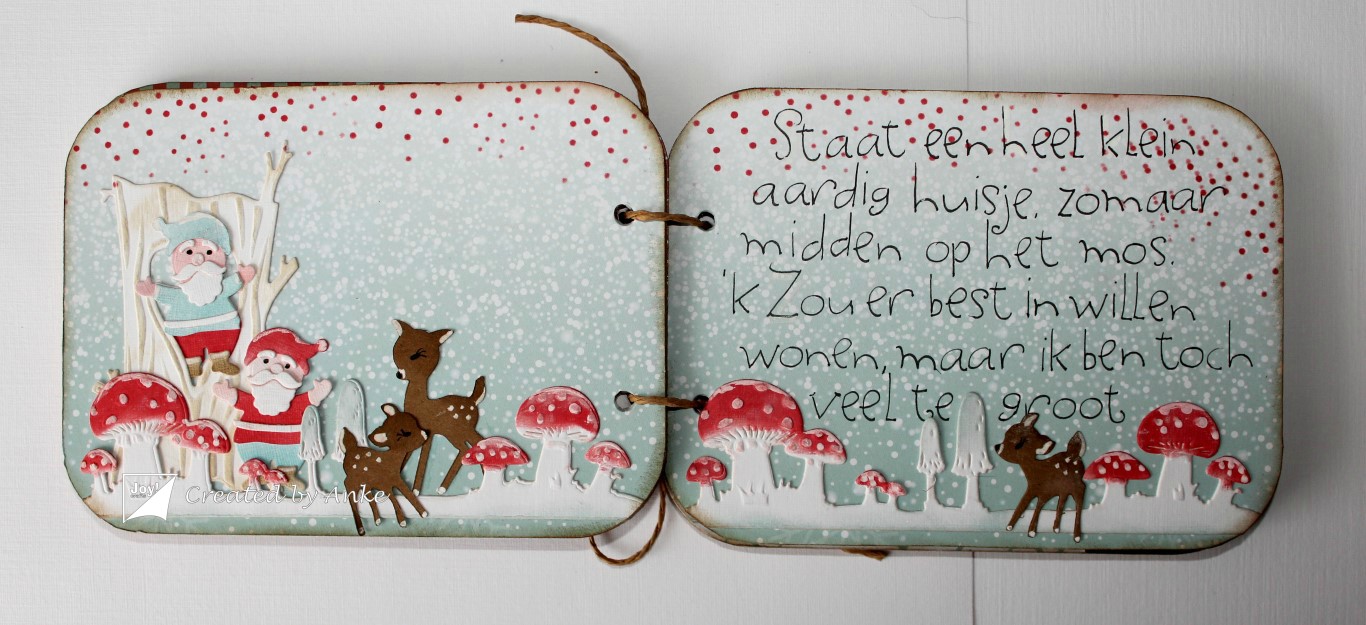 Staat een heel klein
aardig huisje, zomaar
midden op het mos.
'k Zou er best in willen
wonen, maar ik ben toch
veel te groot
Joy!
Created by Anke